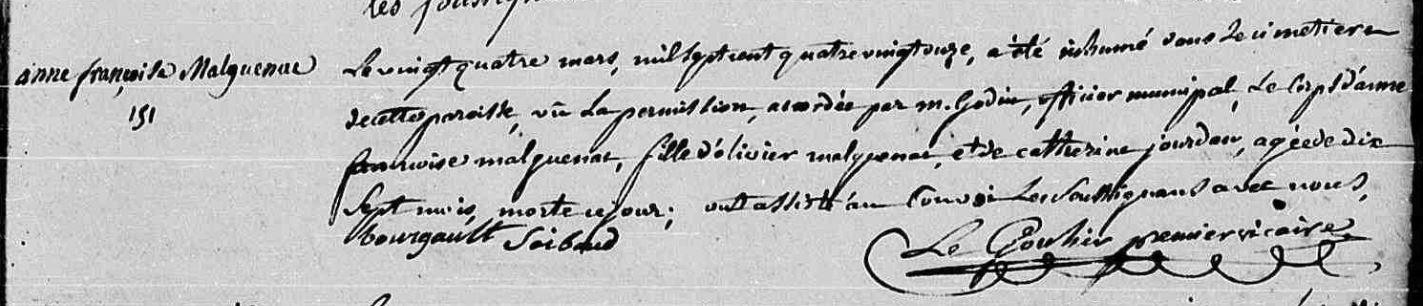 les soussign
anne françoise Malguenac
151
Le vingt quatre mars, mil sept cent quatre vingt onze, a été inhumé dans le cimetiere
de cette paroisse, vû la permission, accordée par m. Godin, officier municipal, Le corps d'anne
francoise malguenac, fille d'olivier malguenac, et de catherine jourdan, agée de dix
sept mois, morte ce jour; ont assisté au Convoi Les Soussignans avec nous,
bourgault Soibaud
Le Gouhir premier vicaire